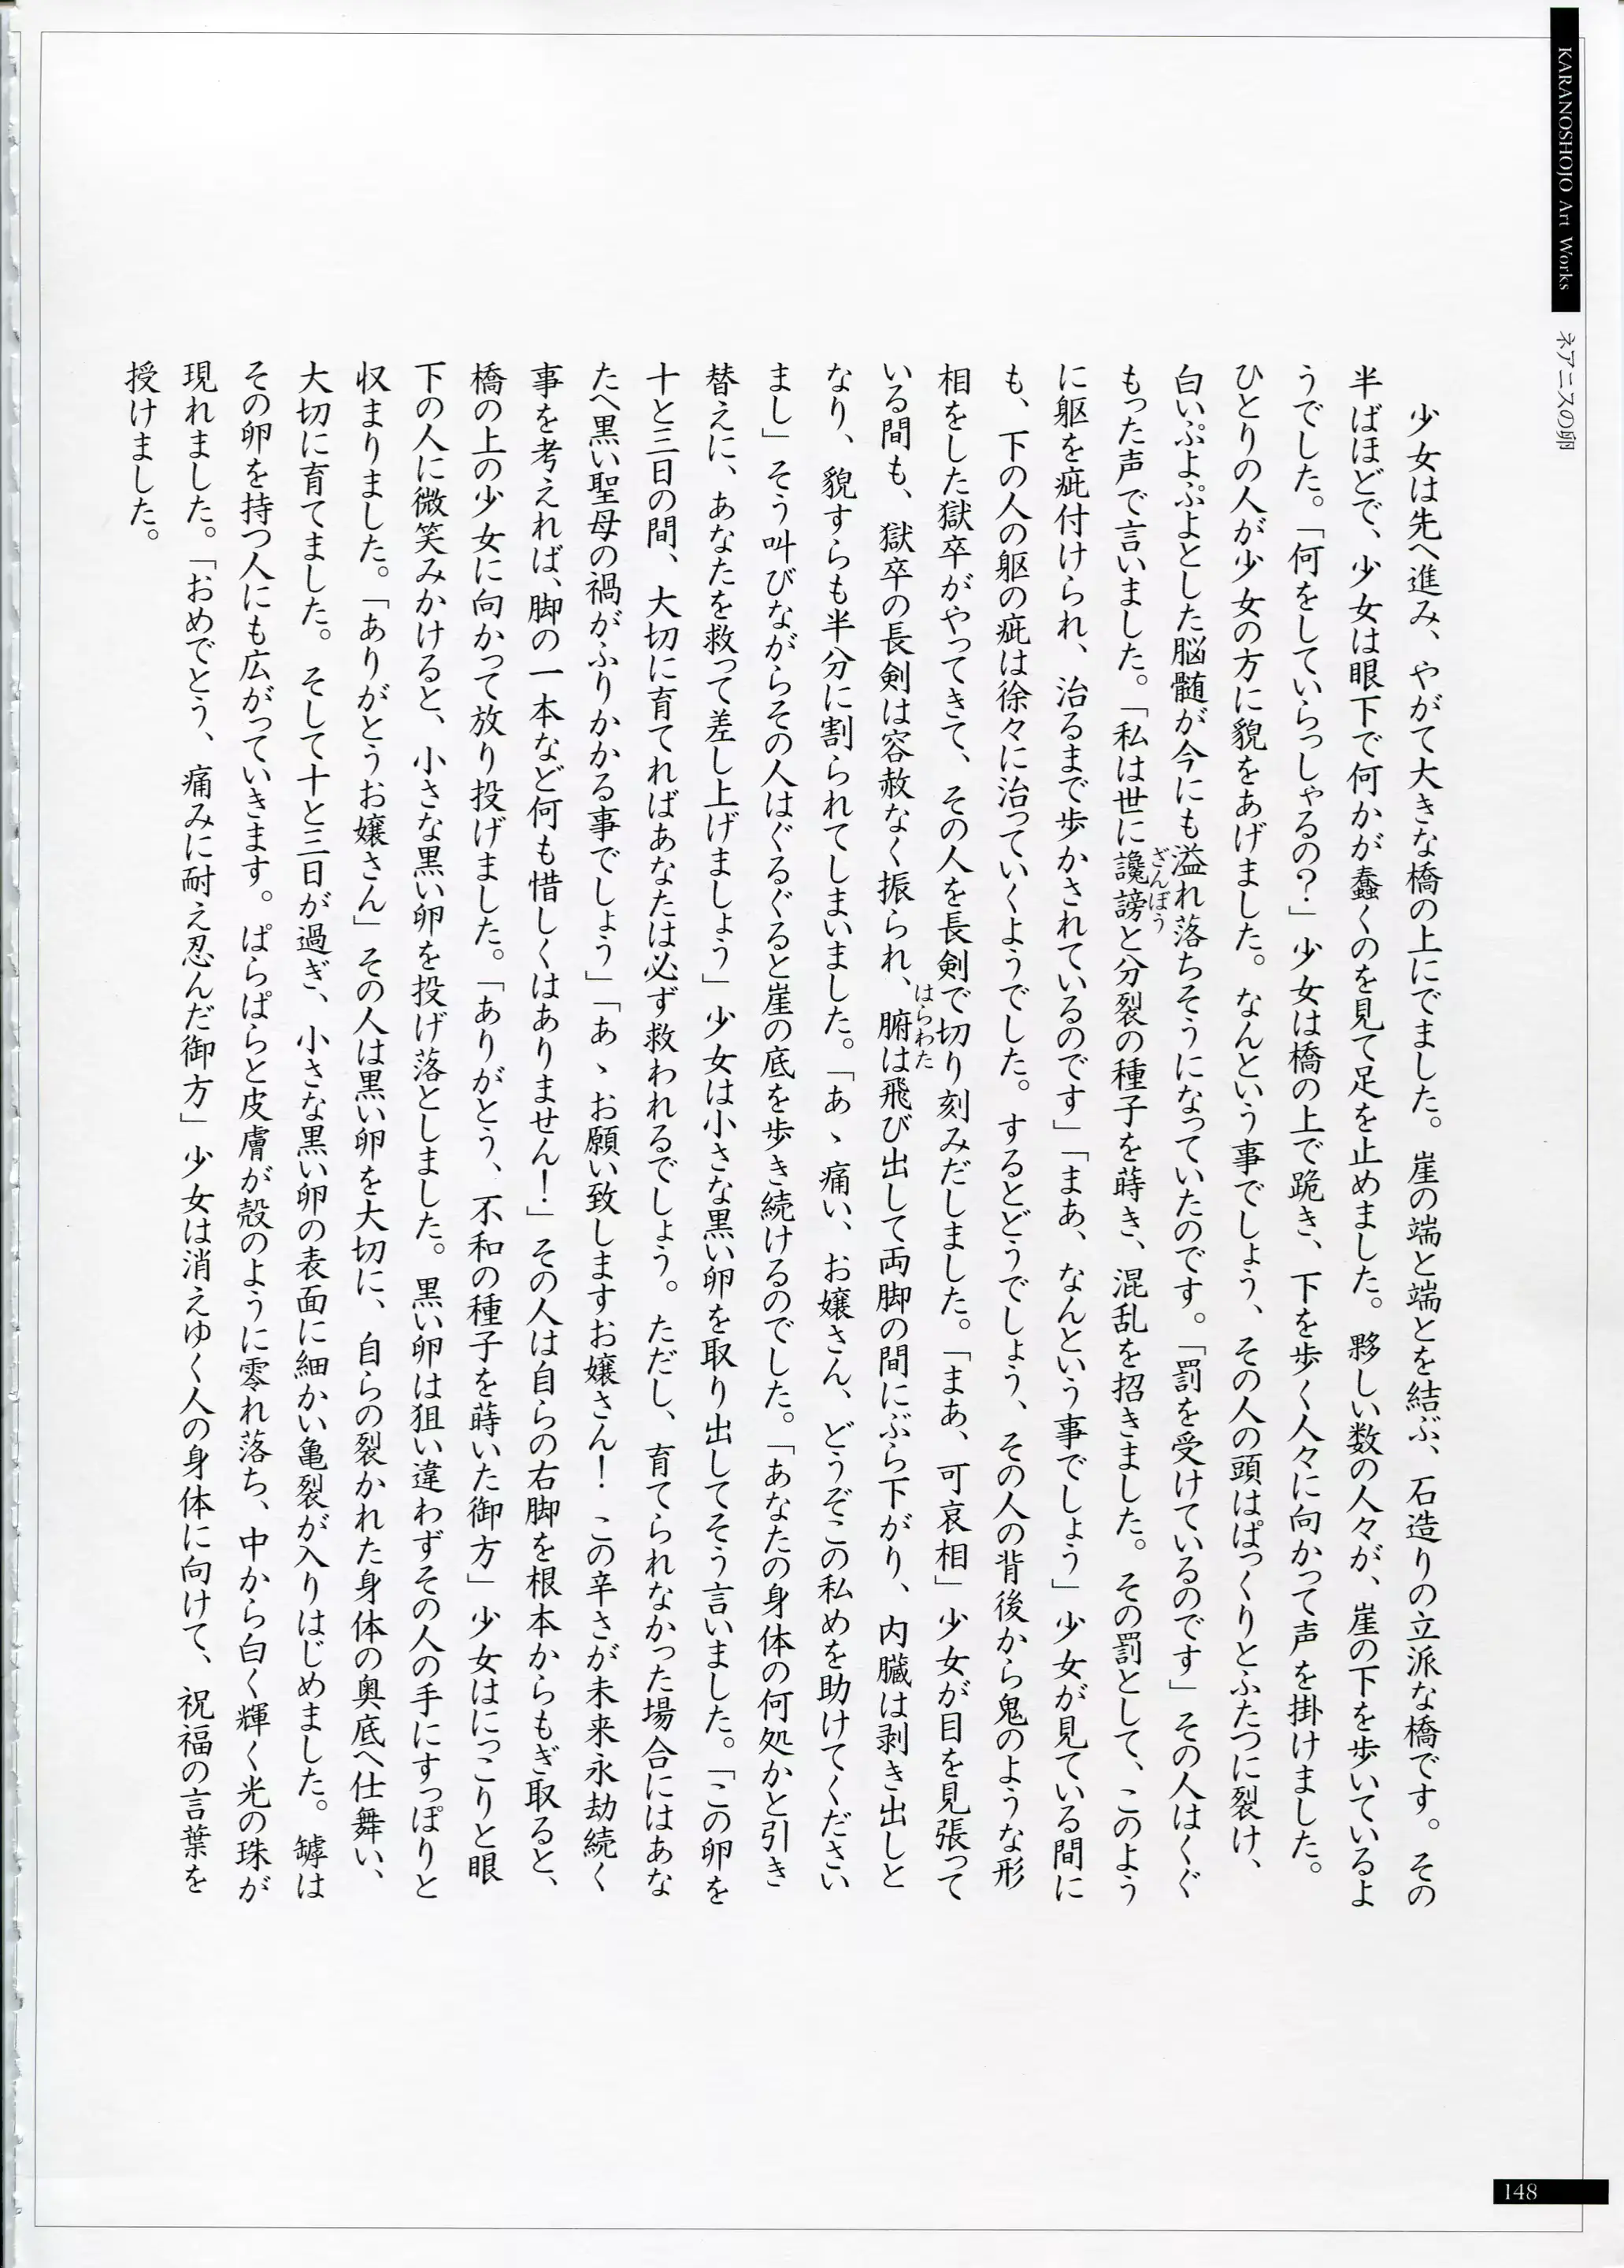 KARANOSHOJO Art Works
ネアニスの卵
少女は先へ進み、やがて大きな橋の上にでました。崖の端と端とを結ぶ、石造りの立派な橋です。その
半ばほどで、少女は眼下で何かが蠢くのを見て足を止めました。夥しい数の人々が、崖の下を歩いているよ
うでした。「何をしていらっしゃるの？」少女は橋の上で跪き、下を歩く人々に向かって声を掛けました。
ひとりの人が少女の方に貌をあげました。なんという事でしょう、その人の頭はぱっくりとふたつに裂け、
白いぷよぷよとした脳髄が今にも溢れ落ちそうになっていたのです。「罰を受けているのです」その人はくぐ
もった声で言いました。「私は世に讒謗と分裂の種子を蒔き、混乱を招きました。その罰として、このよう
ざんぼう
に躯を疵付けられ、治るまで歩かされているのです」「まあ、なんという事でしょう」少女が見ている間に
も、下の人の躯の疵は徐々に治っていくようでした。するとどうでしょう、その人の背後から鬼のような形
相をした獄卒がやってきて、その人を長剣で切り刻みだしました。「まあ、可哀相」少女が目を見張って
いる間も、獄卒の長剣は容赦なく振られ、腑は飛び出して両脚の間にぶら下がり、内臓は剥き出しと
はらわた
なり、貌すらも半分に割られてしまいました。「あゝ痛い、お嬢さん、どうぞこの私めを助けてください
まし」そう叫びながらその人はぐるぐると崖の底を歩き続けるのでした。「あなたの身体の何処かと引き
替えに、あなたを救って差し上げましょう」少女は小さな黒い卵を取り出してそう言いました。「この卵を
十と三日の間、大切に育てればあなたは必ず救われるでしょう。ただし、育てられなかった場合にはあな
たへ黒い聖母の禍がふりかかる事でしょう」「あゝお願い致しますお嬢さん！　この辛さが未来永劫続く
事を考えれば、脚の一本など何も惜しくはありません！」その人は自らの右脚を根本からもぎ取ると、
橋の上の少女に向かって放り投げました。「ありがとう、不和の種子を蒔いた御方」少女はにっこりと眼
下の人に微笑みかけると、小さな黒い卵を投げ落としました。黒い卵は狙い違わずその人の手にすっぽりと
収まりました。「ありがとうお嬢さん」その人は黒い卵を大切に、自らの裂かれた身体の奥底へ仕舞い、
大切に育てました。そして十と三日が過ぎ、小さな黒い卵の表面に細かい亀裂が入りはじめました。罅は
その卵を持つ人にも広がっていきます。ぱらぱらと皮膚が殻のように零れ落ち、中から白く輝く光の珠が
現れました。「おめでとう、痛みに耐え忍んだ御方」少女は消えゆく人の身体に向けて、祝福の言葉を
授けました。
148